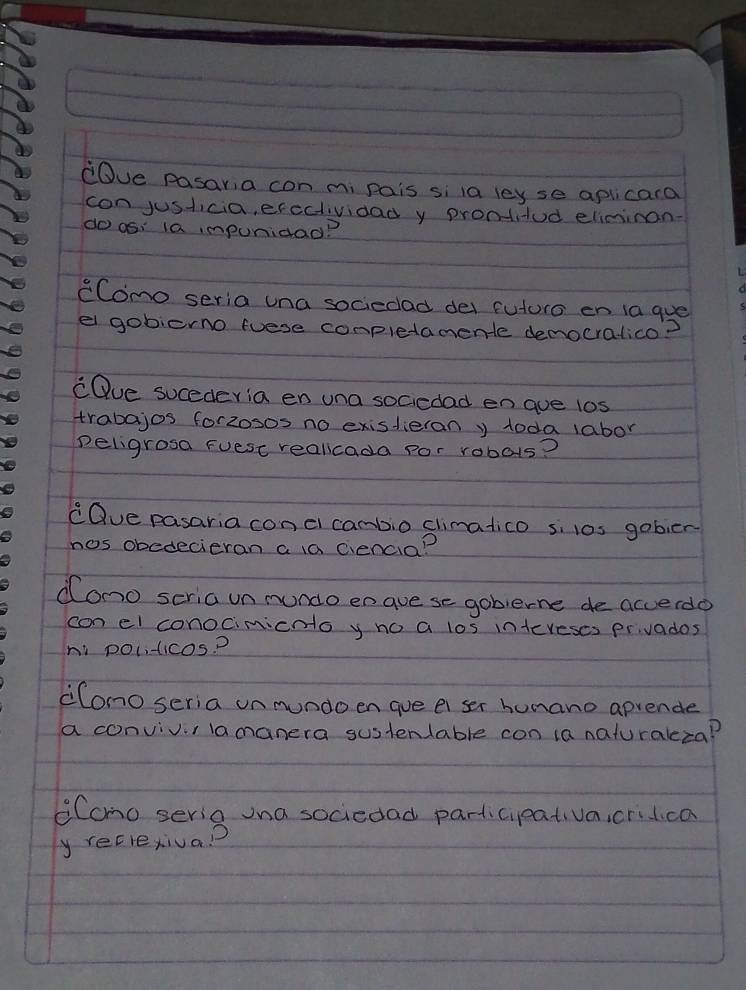 ¿Que pasaria con mi pais si la ley se aplicara
con justicia, efectividad y prontitud eliminan-
do asi la impunidad?
¿Cómo seria una sociedad del futuro en la que
el gobierno fuese completamente democratico?
¿Que sucederia en una sociedad en que los
trabajos forzosos no existieran y toda labor
peligrosa fuese realicada por robots?
¿Que pasaria con el cambio climatico si los gobier-
nos obedecieran a la ciencia?
¿Como seria un mundo en que se gobierne de acuerdo
con el conocimiento y no a los intereses privados
ni politicos?
¿Como seria un mundo en que el ser humano aprende
a convivir la manera sustentable con la naturaleza?
¿Como seria una sociedad participativa, critica
y reflexiva?